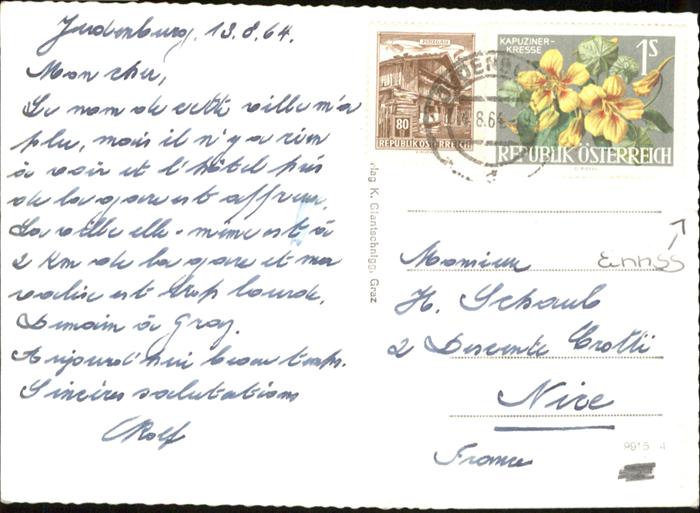 Judenburg, 13.8.64.
Mon cher,
Le nom de cette ville m'a
plu, mais il n'y a rien
à voir et l'hôtel près
de la gare est affreux.
La ville elle-même est à
2 km de la gare et ma
valise est trop lourde.
Demain à Graz.
Aujourd'hui beau temps.
Sincères salutations
Rolf
80
REPUBLIK ÖSTERREICH
KAPUZINER-
KRESSE
1S
REPUBLIK ÖSTERREICH
8.64
lag K. Glantschnigg, Graz
Monsieur
H. Schaub
2 Descente Crotti
Nice
France